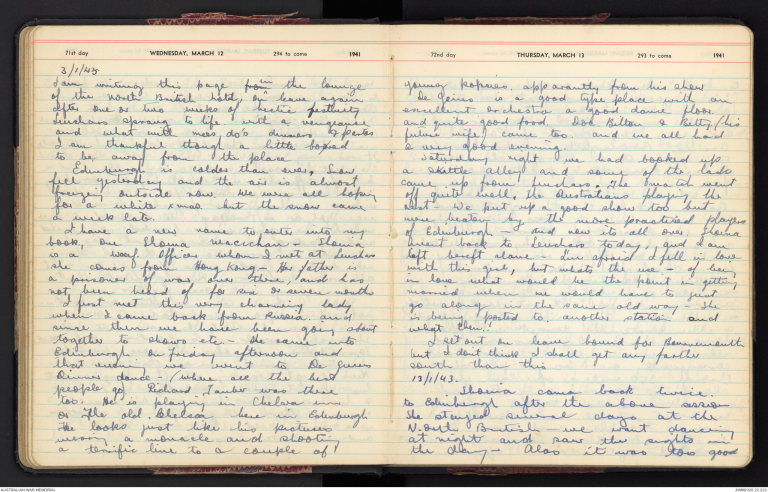 71st day WEDNESDAY, MARCH 12 294 to come 1941
3/1/43
I am writing this page from in the lounge
of the North British hotel, on leave again
after one or two weeks of hectic festivity
Leuchars sprang to life with a vengeance
and what with mess do's dinners & parties
I am thankful though a little bored
to be away from the place
Edinburgh is colder than ever, Snow
fell yesterday and the air is almost
freezing outside now. We were all hoping
for a white xmas but the snow came
a week late.
I have a new name to enter into my
book, one Shoina — Shoina
is a waaf Officer whom I met at Leuchars
she comes from Hong Kong — Her father is
a prisoner of war over there, and has
not been heard of for six or seven months
I first met this very charming lady
when I came back from Russia and
since then we have been going about
together to shows etc — She came into
Edinburgh on Friday afternoon and
that evening we went to De Guises
Dinner dance — (where all the best
people go) Richard Tauber was there
too. He is playing in
or The old Chelsea here in Edinburgh
He looks just like his pictures
wearing a monacle and shooting
a terrific line to a couple of
72nd day THURSDAY, MARCH 13 293 to come 1941
young popsies, apparantly from his show
De Guises is a good type place with an
excellent orchestra a good dance floor
and quite good food Bob Bilton & Betty, (his
future wife) came too. and we all had
a very good evening.
Saturday night we had booked up
a skittle alley and some of the lads
came up from Leuchars. The match went
off quite well, the Australians playing the
rest. We put up a good show too but
were beaten by the more practised players
of Edinburgh — and now its all over. Shoina
went back to Leuchars today, and I am
left bereft alone — I'm afraid I fell in love
with this girl, but whats the use — of being
in love what would be the point in getting
married when we would have to just
go along in the same old way — She
is being posted to another station and
what then!
I set out on leave bound for Bournemouth
but I dont think I shall get any farther
south than this
13/1/43.
Shoina came back twice
to Edinburgh after the above
She stayed several days at the
North British — we went dancing
at night and saw the sights in
the day — Alas it was too good
AUSTRALIAN WAR MEMORIAL